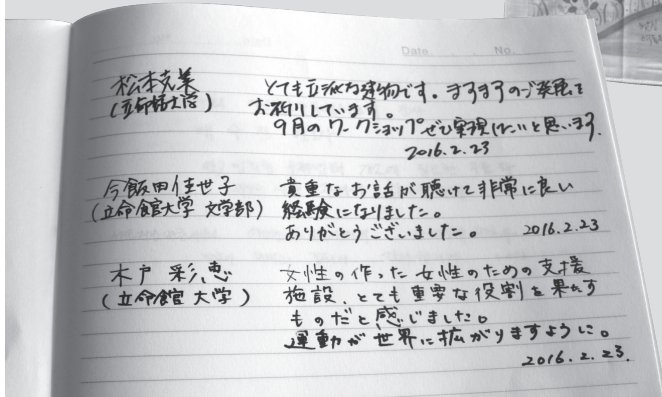 Date No.
松本克美 とても立派な建物です。ますますのご発展を
(立命館大学) お祈りしています。
9月のワークショップぜひ実現したいと思います。
2016.2.23
今飯田佳世子 貴重なお話が聴けて非常に良い
(立命館大学 文学部) 経験になりました。
ありがとうございました。 2016.2.23
木戸 彩恵 女性の作った女性のための支援
(立命館大学) 施設、とても重要な役割を果たす
ものだと感じました。
運動が世界に拡がりますように。
2016.2.23.